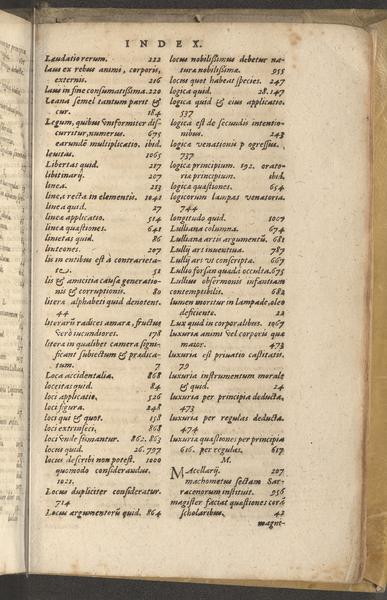 INDEX.
Laudatio rerum. 222
laus ex rebus animi, corporis,
externis. 216
laus in fine consumatissima. 220
Leana semel tantum parit &
cur. 184
Legum, quibus vniformiter dis-
curritur, numerus. 675
earundē multiplicatio. ibid.
leuitas. 1065
Libertas quid. 217
libitinarij. 207
linea. 213
linea recta in elementis. 1041
linea quid. 27
linea applicatio. 514
linea quæstiones. 641
linietas quid. 86
linteones. 207
lis in entibus est à contrarieta-
te. 51
lis & amicitia causa generatio-
nis & corruptionis. 80
litera alphabeti quid denotent.
44
literarū radices amara, fructus
verò iucundiores. 178
litera in qualibet camera signi-
ficant subiectum & prædica-
tum. 7
Loca accidentalia. 868
loceitas quid. 84
loci applicatio. 526
loci figura. 248
loci qui & quot. 158
loci extrinseci. 868
loci vnde sumantur. 862. 863
locus quid. 26. 797
locus describi non potest. 1000
quomodo consideraudus.
1021.
Locus dupliciter consideratur.
714
Locus argumentorū quid. 864
locus nobilissimus debetur na-
tura nobilissima. 955
locus quot habeat species. 247
logica quid. 28. 147
logica quid & eius applicatio.
537
logica est de secundis intentio-
nibus. 243
logica venationis p ogressus.
737
logica principium. 192. orato-
ria principium. ibid.
logica quæstiones. 654
logicorum lampas venatoria.
744
longitudo quid. 1007
Lulliana columna. 674
Lulliana artis argumentū. 681
Lullij ars inuentiua. 787
Lullij ars vt conscripta. 667
Lullio forsan quadā occulta. 675
Lullius obsermonis infantiam
contemptibilis. 682
lumen moritur in lampade, oleo
deficiente. 22
Lux quid in corporalibus. 1067
luxuria animi vel corporis qua
maior. 473
luxuria est priuatio castitatis.
79
luxuria instrumentum morale
& quid. 24
luxuria per principia deducta.
473
luxuria per regulas deducta.
474
luxuria quæstiones per principia
616. per regulas. 617
M.
MAcellarij. 207
machometus sectam Sar-
racenorum instituit. 956
magister faciat quæstiones corā
scholaribus. 42
magni-